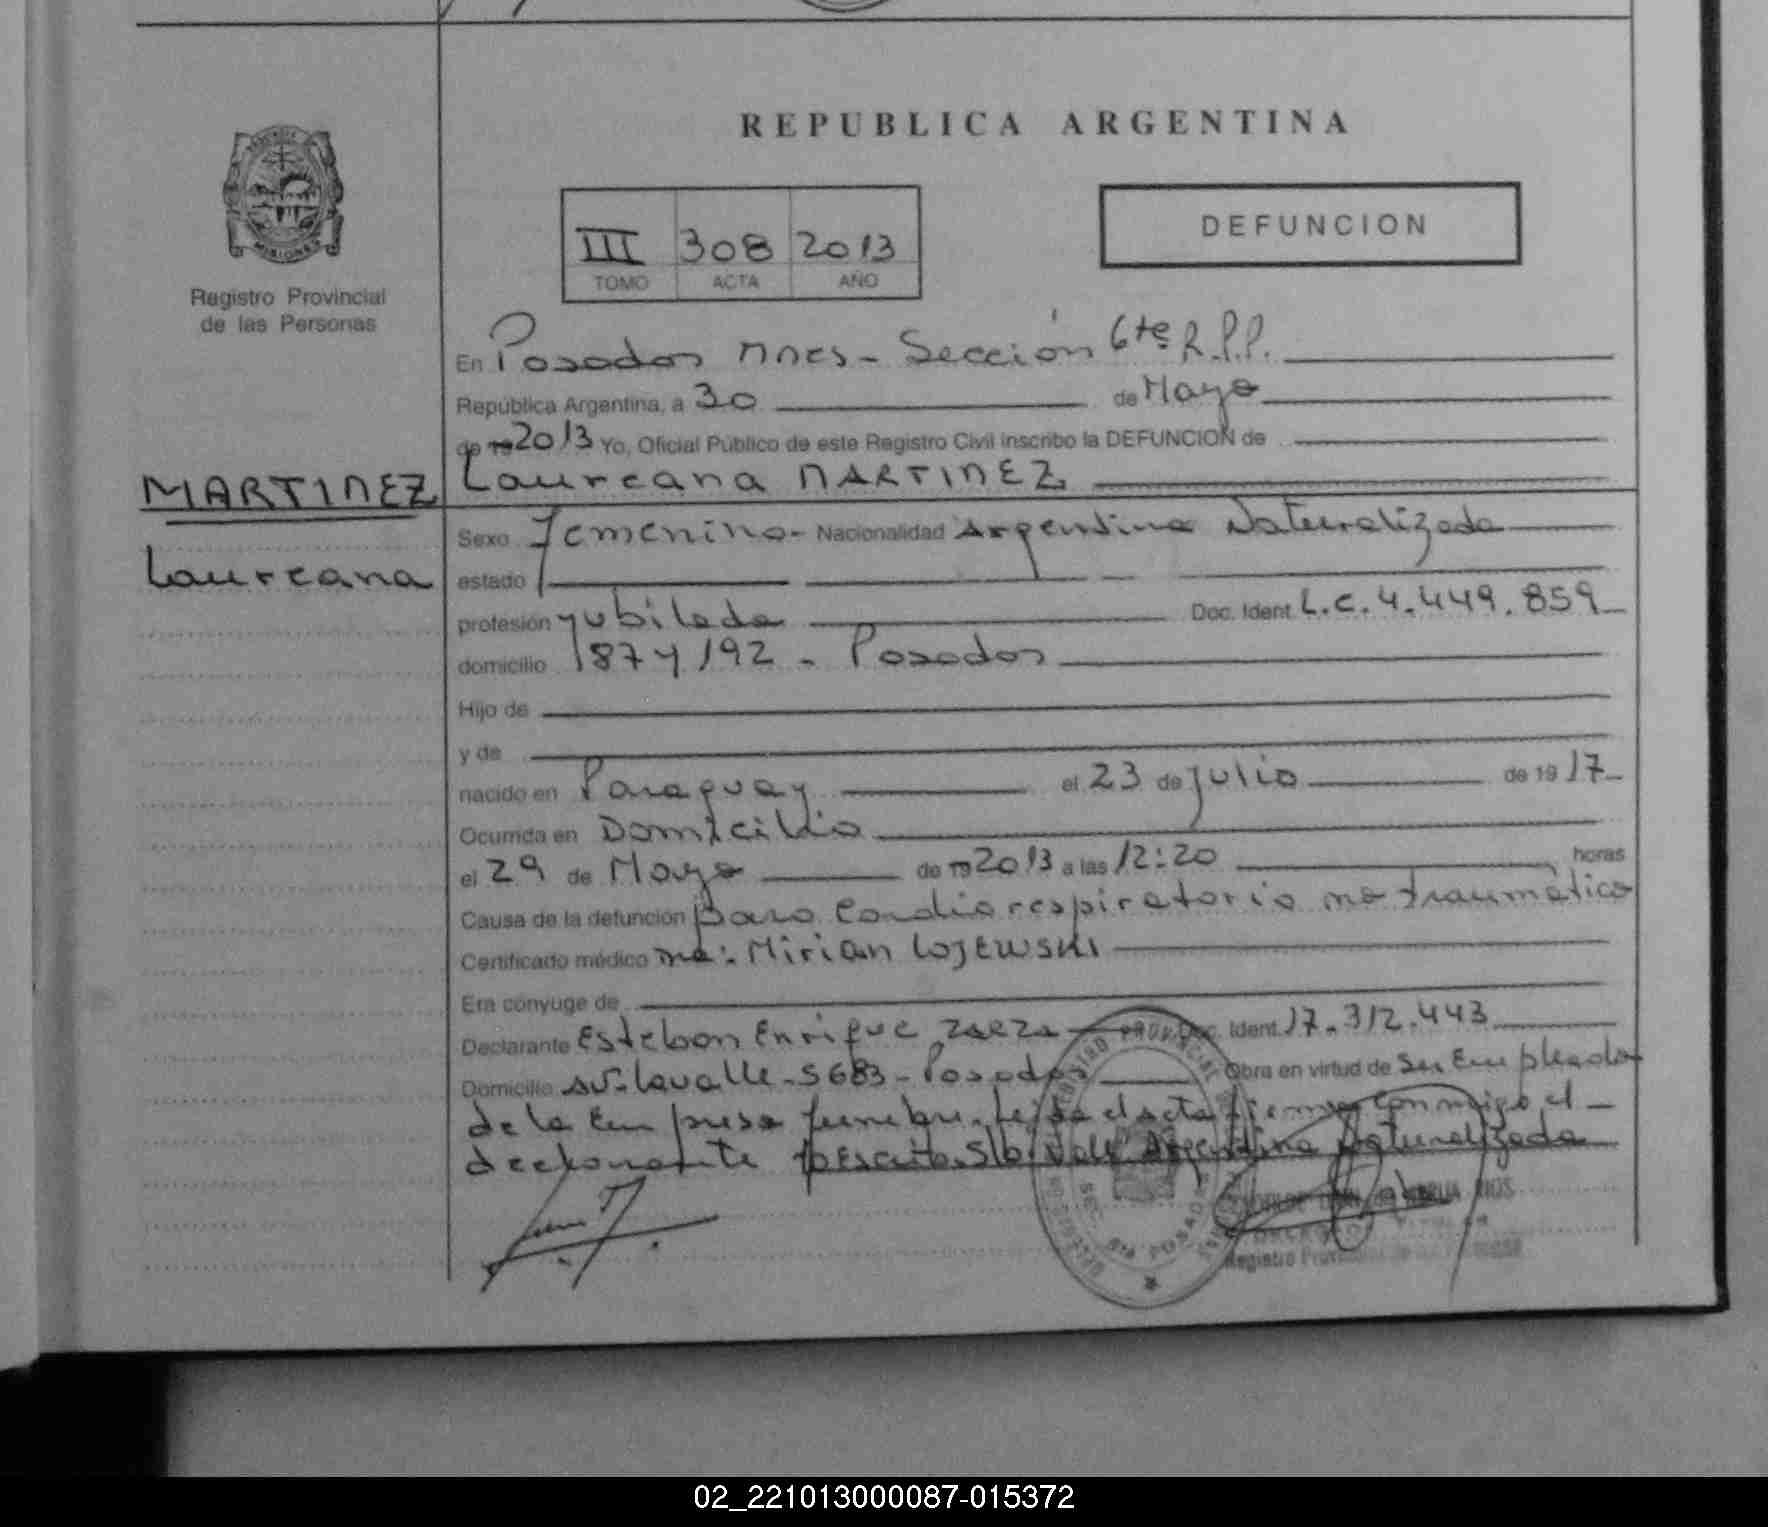 REPUBLICA ARGENTINA
Registro Provincial
de las Personas
III 308 2013
TOMO ACTA AÑO
DEFUNCION
En Posadas Mnes - Sección 6ta R.P.P.
República Argentina, a 30 de Mayo
de 19 2013 Yo, Oficial Público de este Registro Civil inscribo la DEFUNCION de
Laureana MARTINEZ
MARTINEZ
Laureana
Sexo Femenino - Nacionalidad Argentina Naturalizada
estado
profesión Jubilada Doc. Ident. L.C. 4.449.859
domicilio 187 y 192 - Posadas
Hijo de
y de
nacido en Paraguay el 23 de Julio de 19 17
Ocurrida en Domicilio
el 29 de Mayo de 19 2013 a las 12:20 horas
Causa de la defunción paro cardiorespiratorio no traumático
Certificado médico Mirian Lojewski
Era cónyuge de
Declarante Esteban Enrique Doc. Ident. 17.312.443
Domicilio Av. Lavalle - 5683 - Posadas Obra en virtud de Ser Empleado
de la Empresa funebre. Leida el acta firma conmigo el
declarante S/b. Vale Argentina Naturalizada
REGISTRO PROVINCIAL
POSADAS
Registro Provincial de las
02_221013000087-015372